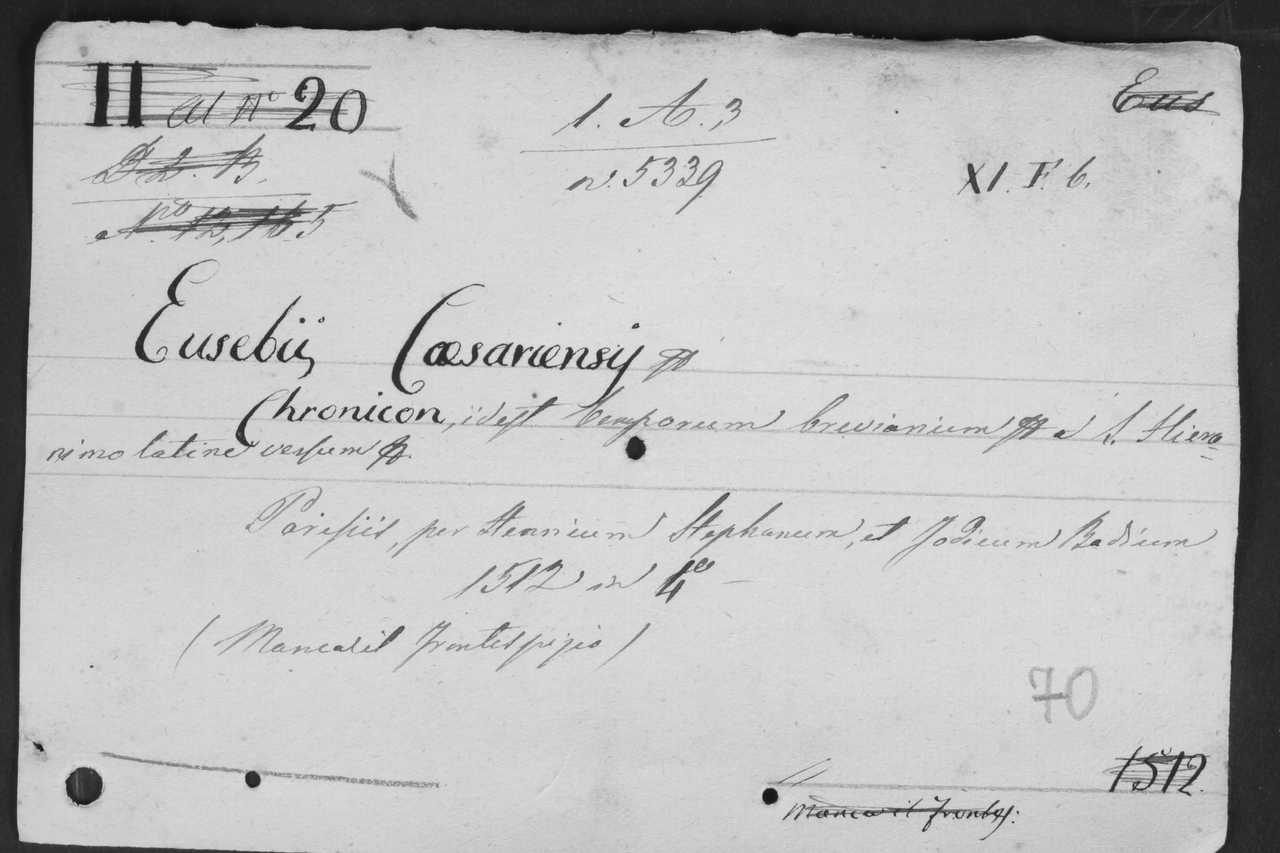 II al N° 20
1. A. 3
Eus
D 2. B.
n. 5339
XI. F. 6.
N.ro 12,165
Eusebii, Cæsariensij
Chronicon, idest temporum breviarium a S. Hiero=
nimo latine versum
Parisiis, per Henricum Stephanum, et Jodicum Badium
1512 in 4°
(Manca il frontespizio)
70
1512.
Manca il frontesp: